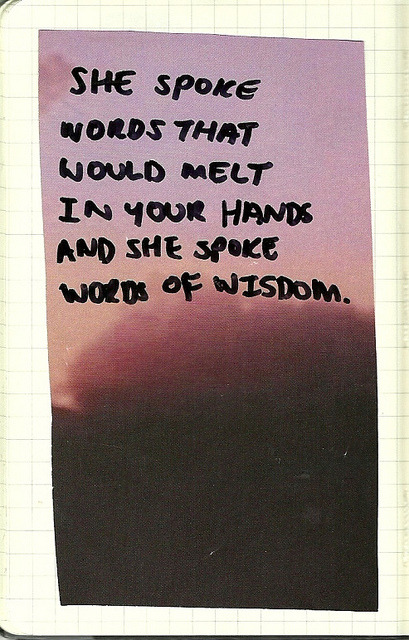 SHE SPOKE
WORDS THAT
WOULD MELT
IN YOUR HANDS
AND SHE SPOKE
WORDS OF WISDOM.